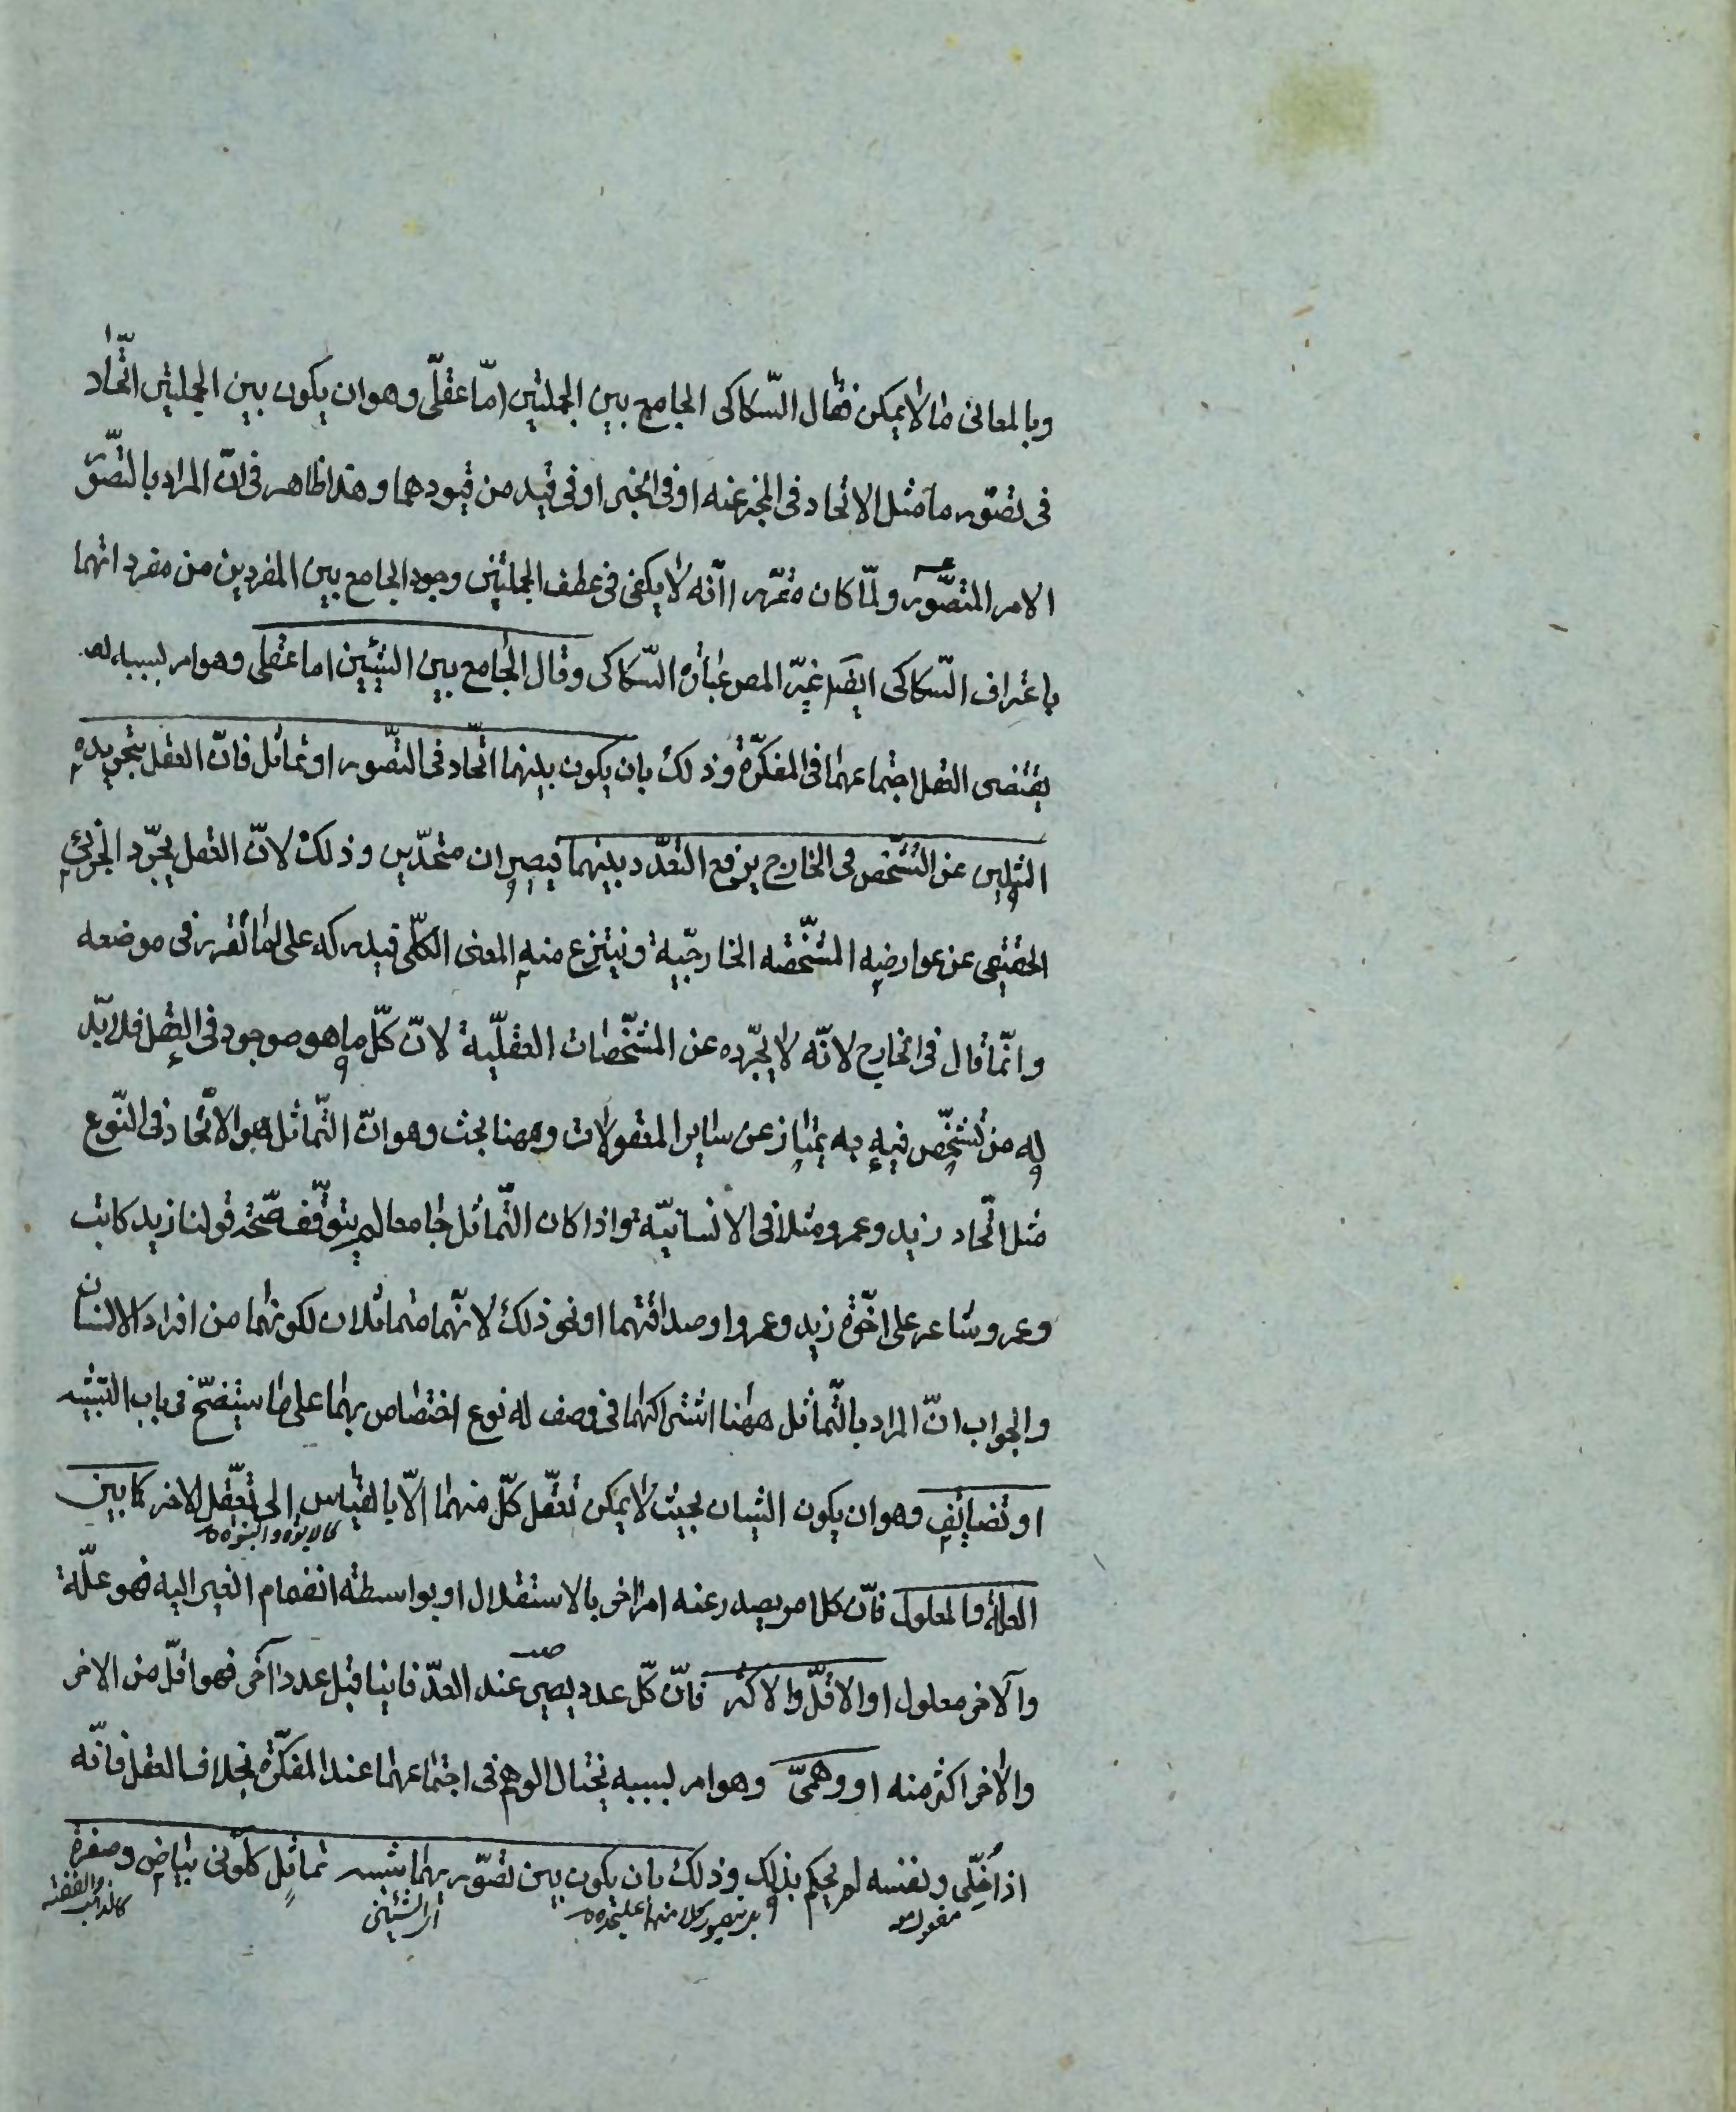 وبالمعانى ما لا يمكن فقال السّكاكى الجامع بين الجملتين امّا عقلّى وهو ان يكون بين الجملتين اتّحاد
فى تصوّر ما مثل الاتحاد فى المخبر عنه او فى الخبر او فى قيد من قيودهما وهذا ظاهر فى انّ المراد بالتّصوّر
الامر المتصّور ولمّا كان مقرّرا انّه لا يكفى فى عطف الجملتين وجود الجامع بين المفردين من مفرداتهما
باعتراف السّكاكى ايضا غيّر المص عبارة السّكاكى وقال الجامع بين الشيئين اما عقلى وهو امر بسببه
يقتضى العقل اجتماعهما فى المفكّرة وذلك بان يكون بينهما اتّحاد فى التصّور او تماثل فانّ العقل بتجريده
المثلين عن التّشخّص فى الخارج يرفع التعدّد بينهما فيصيران متحدّين وذلك لانّ العقل يجرّد الجزئى
الحقيقى عن عوارضه المشخّصة الخارجيّة وينتزع منه المعنى الكلّى فيدركه على ما تقرر فى موضعه
وانّما قال فى الخارج لانّه لا يجرّده عن المشخّصات العقليّة لانّ كلّ ما هو موجود فى العقل فلا بدّ
له من تشخّص فيه به يمتاز عن ساير المعقولات وههنا بحث وهو انّ التّماثل هو الاتّحاد فى النّوع
مثل اتّحاد زيد وعمرو مثلا فى الانسانيّة واذا كان التّماثل جامعا لم يتوقّف صّحة قولنا زيد كاتب
وعمرو شاعر على اخوّة زيد وعمرو او صداقتهما او نحو ذلك لانّهما متماثلان لكونهما من افراد الانسان
والجواب انّ المراد بالتّماثل ههنا اشتراكهما فى وصف له نوع اختصاص بهما على ما سيتضّح فى باب التشبيه
او تضايف وهو ان يكون الشيئان بحيث لا يمكن تعقّل كلّ منهما الّا بالقياس الى تعقّل الاخر كما بين
كالابوة والبنوة
العلة والمعلول فانّ كل امر يصدر عنه امر اخر بالاستقلال او بواسطة انضمام الغير اليه فهو علّة
والاخر معلول او الاقلّ والاكثر فانّ كّل عدد يصير عند العدّ فانيا قبل عدد آخر فهو اقلّ من الاخر
والاخر اكثر منه او وهمىّ وهو امر بسببه يحتال الوهم فى اجتماعهما عند المفكّرة بخلاف العقل فانّه
اذا خلّى ونفسه لم يحكم بذلك وذلك بان يكون بين تصوّريهما شبه تماثل كلونى بياض وصفرة
اى الشيئين